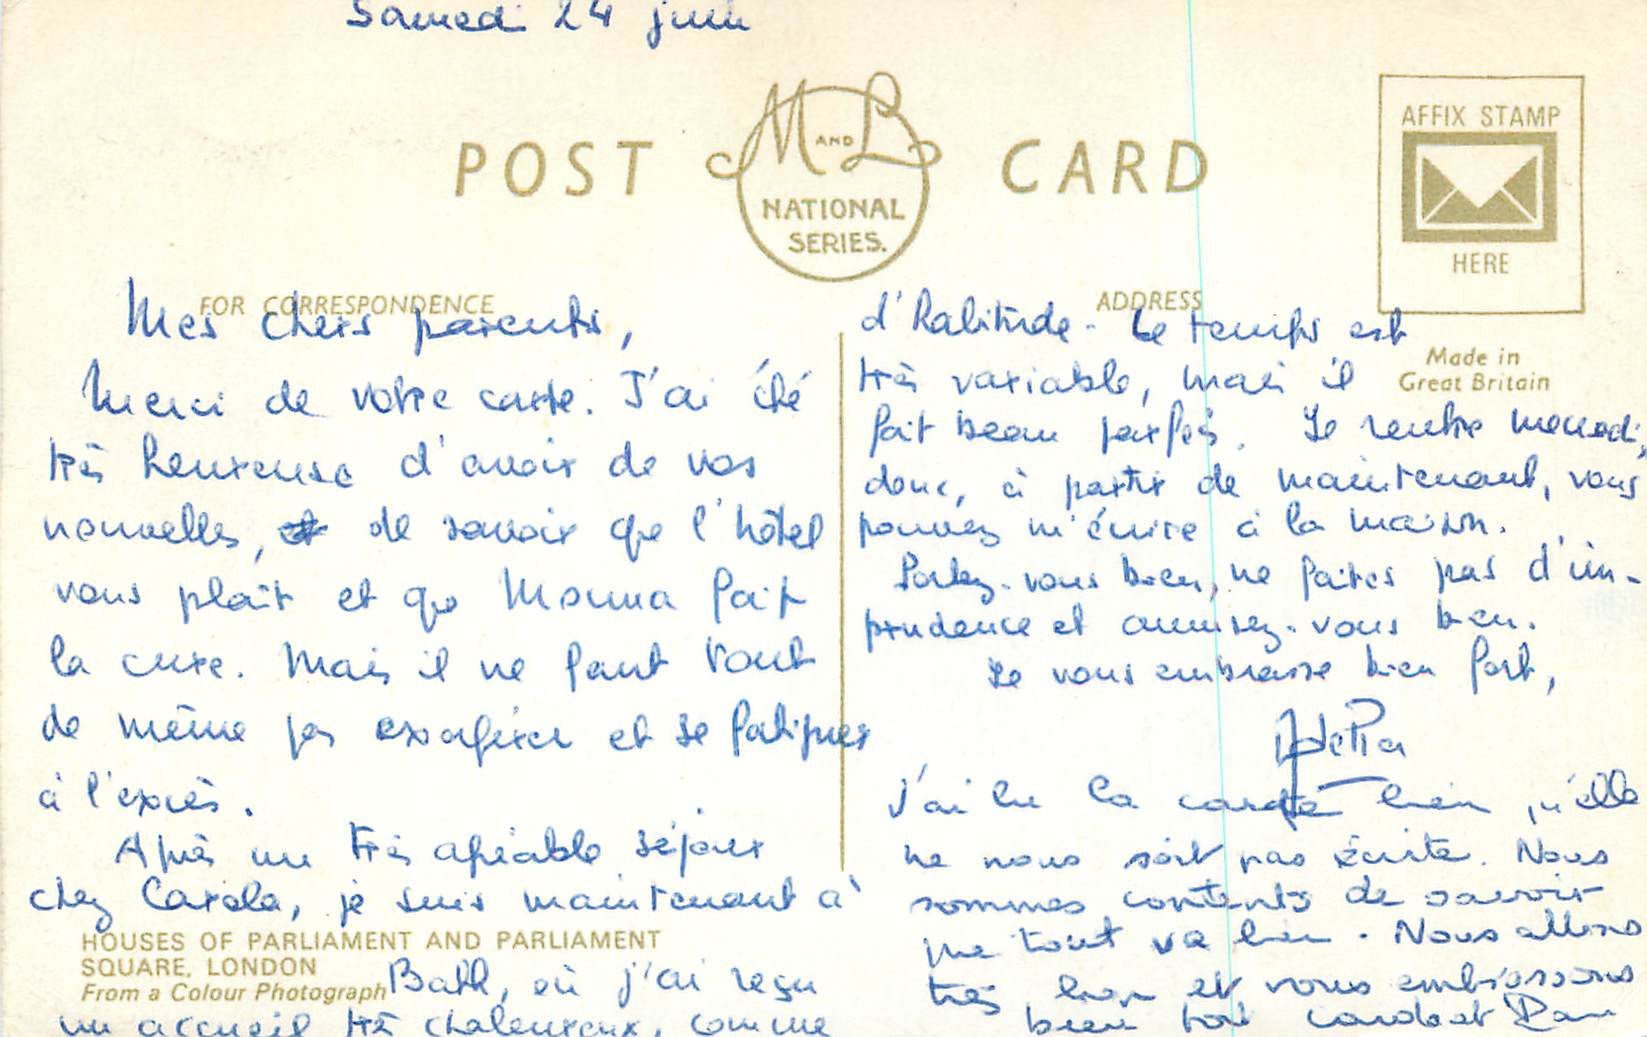 Samedi 24 juin
POST CARD
M AND L
NATIONAL
SERIES.
AFFIX STAMP
HERE
FOR CORRESPONDENCE
ADDRESS
Made in
Great Britain
Mes chers parents,
Merci de votre carte. J'ai été
très heureuse d'avoir de vos
nouvelles, de savoir que l'hôtel
vous plaît et que Mouna fait
la cure. Mais il ne faut tout
de même pas exagérer et se fatiguer
à l'excès.
Après un très agréable séjour
chez Carola, je suis maintenant à
HOUSES OF PARLIAMENT AND PARLIAMENT
SQUARE, LONDON
From a Colour Photograph
Bath, où j'ai reçu
un accueil très chaleureux, comme
d'habitude. Le temps est
très variable, mais il
fait beau parfois. Je rentre mercredi,
donc, à partir de maintenant, vous
pouvez m'écrire à la maison.
Portez-vous bien, ne faites pas d'im-
prudence et amusez-vous bien.
Je vous embrasse bien fort,
J'ai lu la carte bien qu'elle
ne nous soit pas écrite. Nous
sommes contents de savoir
que tout va bien. Nous allons
très bien et vous embrassons
bien fort